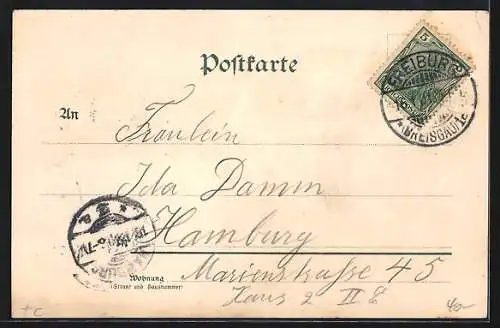 5
FREIBURG
* (BREISGAU) 1 *
Postkarte
An
Fräulein
Ida Damm
Hamburg
Marienstrasse 45
Haus 2 II
Wohnung
(Strasse und Hausnummer)
+C
40-